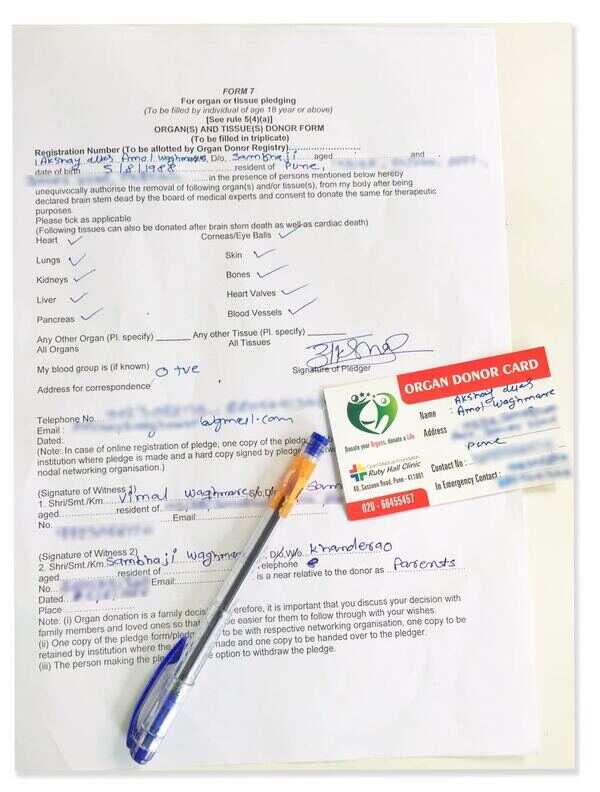 FORM 7
For organ or tissue pledging
(To be filled by individual of age 18 year or above)
[See rule 5(4)(a)]
ORGAN(S) AND TISSUE(S) DONOR FORM
(To be filled in triplicate)
Registration Number (To be allotted by Organ Donor Registry)
I Akshay alias Amol Waghmare D/o, Sambhaji aged and
date of birth 5/8/1988 resident of Pune,
in the presence of persons mentioned below hereby
unequivocally authorise the removal of following organ(s) and/or tissue(s), from my body after being
declared brain stem dead by the board of medical experts and consent to donate the same for therapeutic
purposes.
Please tick as applicable
(Following tissues can also be donated after brain stem death as well as cardiac death)
Heart Corneas/Eye Balls
Lungs Skin
Kidneys Bones
Liver Heart Valves
Pancreas Blood Vessels
Any Other Organ (Pl. specify) Any other Tissue (Pl. specify)
All Organs All Tissues
My blood group is (if known) O +ve
Signature of Pledger
Address for correspondence
Telephone No
Email : @gmail.com
Dated:
(Note: In case of online registration of pledge, one copy of the pledge
institution where pledge is made and a hard copy signed by pledger
nodal networking organisation.)
(Signature of Witness 1)
1. Shri/Smt./Km. Vimal waghmare S/o,D/o
aged resident of
No. Email
(Signature of Witness 2)
2. Shri/Smt./Km. Sambhaji Waghmare D/o,W/o Khanderao
aged resident of Telephone
No. Email: is a near relative to the donor as Parents
Dated
Place
Note: (i) Organ donation is a family decision, therefore, it is important that you discuss your decision with
family members and loved ones so that be easier for them to follow through with your wishes.
(ii) One copy of the pledge form/pledge to be with respective networking organisation, one copy to be
retained by institution where the made and one copy to be handed over to the pledger.
(iii) The person making the pledge option to withdraw the pledge.
ORGAN DONOR CARD
Name : Akshay alias
Amol Waghmare
Address :
Pune
Contact No :
In Emergency Contact :
Donate your Organs, donate a Life
Grant Medical Foundation
Ruby Hall Clinic
40, Sassoon Road, Pune - 411001
020 - 66455457